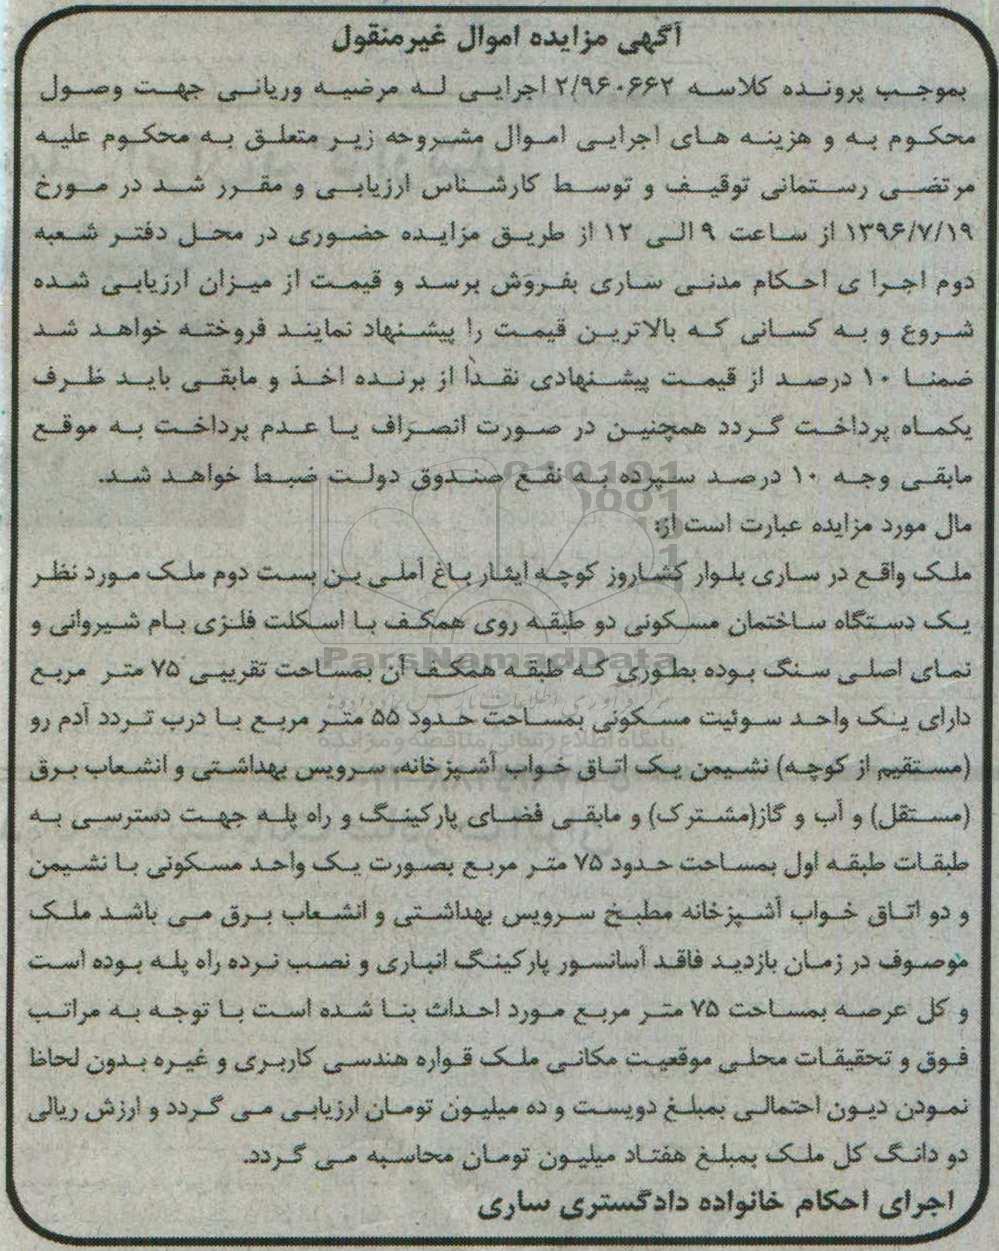 آگهی مزایده اموال غیرمنقول
بموجب پرونده کلاسه ۲/۹۶۰۶۶۲ اجرایی له مرضیه وریانی جهت وصول
محکوم به و هزینه های اجرایی اموال مشروحه زیر متعلق به محکوم علیه
مرتضی رستمانی توقیف و توسط کارشناس ارزیابی و مقرر شد در مورخ
۱۳۹۶/۷/۱۹ از ساعت ۹ الی ۱۲ از طریق مزایده حضوری در محل دفتر شعبه
دوم اجرا ی احکام مدنی ساری بفروش برسد و قیمت از میزان ارزیابی شده
شروع و به کسانی که بالاترین قیمت را پیشنهاد نمایند فروخته خواهد شد
ضمنا ۱۰ درصد از قیمت پیشنهادی نقداً از برنده اخذ و مابقی باید ظرف
یکماه پرداخت گردد همچنین در صورت انصراف یا عدم پرداخت به موقع
مابقی وجه ۱۰ درصد سپرده به نفع صندوق دولت ضبط خواهد شد.
مال مورد مزایده عبارت است از:
ملک واقع در ساری بلوار کشاروز کوچه ایثار باغ آملی بن بست دوم ملک مورد نظر
یک دستگاه ساختمان مسکونی دو طبقه روی همکف با اسکلت فلزی بام شیروانی و
نمای اصلی سنگ بوده بطوری که طبقه همکف آن بمساحت تقریبی ۷۵ متر مربع
ParsNamadData
دارای یک واحد سوئیت مسکونی بمساحت حدود ۵۵ متر مربع با درب تردد آدم رو
پایگاه اطلاع رسانی مناقصه و مزایده
(مستقیم از کوچه) نشیمن یک اتاق خواب آشپزخانه، سرویس بهداشتی و انشعاب برق
(مستقل) و آب و گاز(مشترک) و مابقی فضای پارکینگ و راه پله جهت دسترسی به
طبقات طبقه اول بمساحت حدود ۷۵ متر مربع بصورت یک واحد مسکونی با نشیمن
و دو اتاق خواب آشپزخانه مطبخ سرویس بهداشتی و انشعاب برق می باشد ملک
موصوف در زمان بازدید فاقد آسانسور پارکینگ انباری و نصب نرده راه پله بوده است
و کل عرصه بمساحت ۷۵ متر مربع مورد احداث بنا شده است با توجه به مراتب
فوق و تحقیقات محلی موقعیت مکانی ملک قواره هندسی کاربری و غیره بدون لحاظ
نمودن دیون احتمالی بمبلغ دویست و ده میلیون تومان ارزیابی می گردد و ارزش ریالی
دو دانگ کل ملک بمبلغ هفتاد میلیون تومان محاسبه می گردد.
اجرای احکام خانواده دادگستری ساری